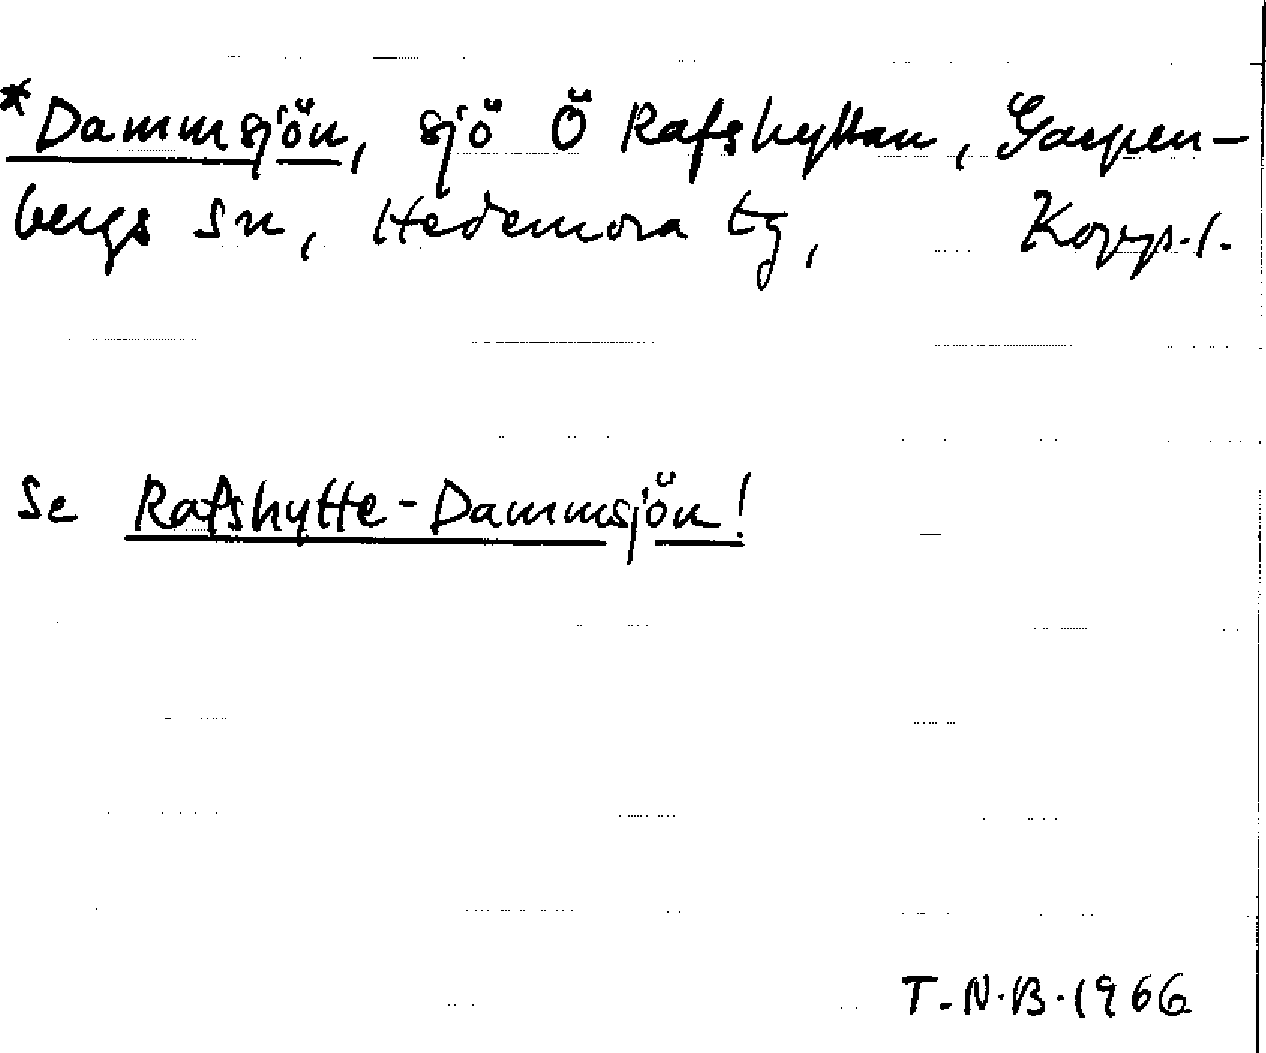 *Dammsjön, sjö Ö Rafshyttan, Garpen-
bergs sn, Hedemora tg, Kopp. l.
Se Rafshytte-Dammsjön!
T.N.B. 1966